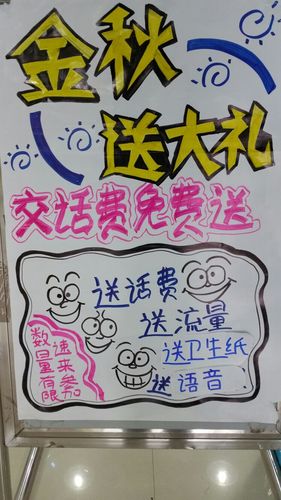 金秋
送大礼
交话费免费送
送话费
送流量
送卫生纸
送语音
数量有限
速来参加